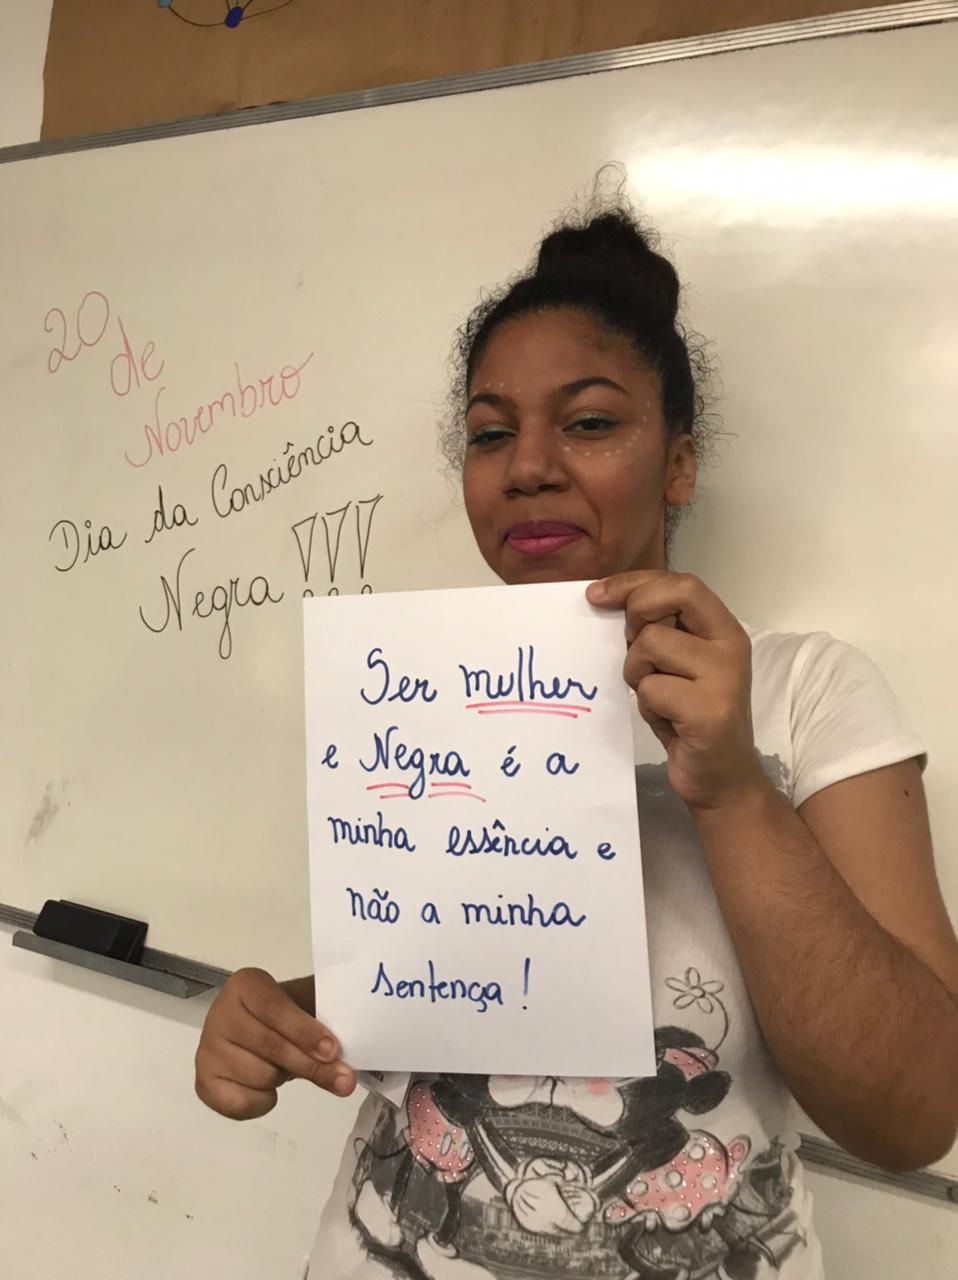 20
de
Novembro
Dia da Consciência
Negra !!!
Ser mulher
e Negra é a
minha essência e
não a minha
sentença !